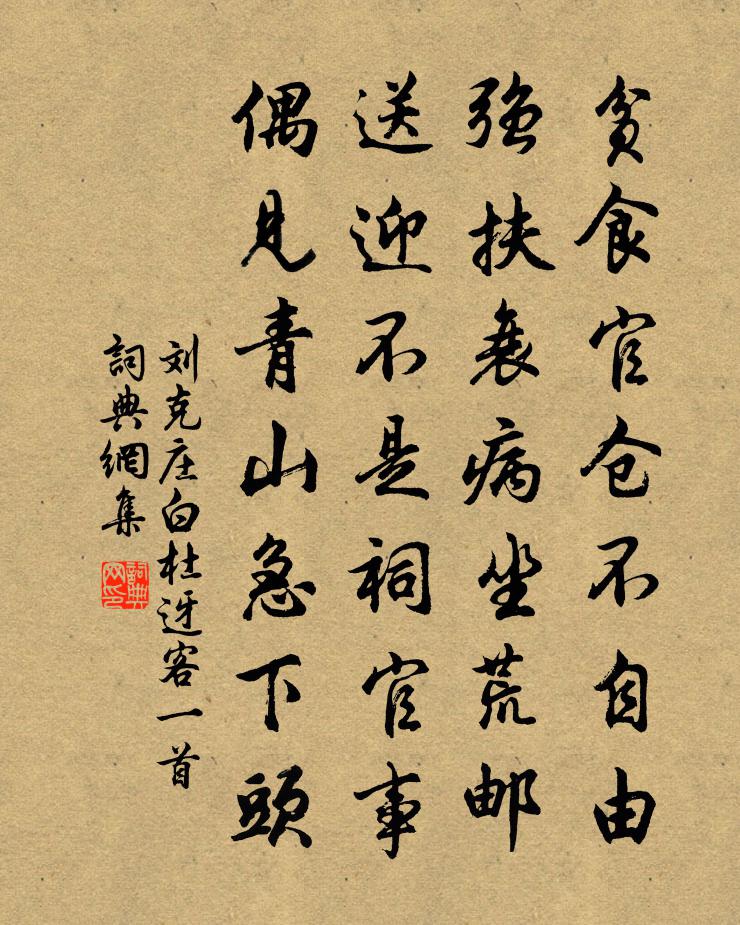 貧食官仓不自由
強扶衰病坐荒邮
送迎不是祠官事
偶見青山急下頭
刘克庄白杜迓客一首
詞典網集
詞典网印